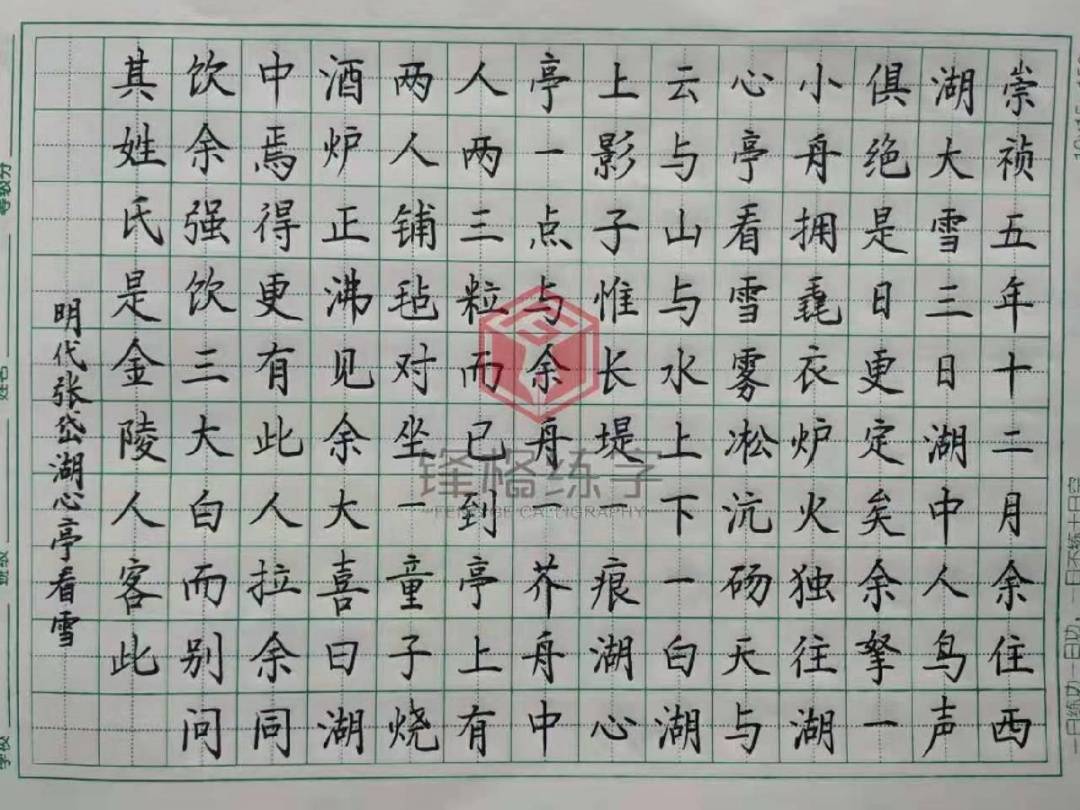 崇祯五年十二月余住西
湖大雪三日湖中人鸟声
俱绝是日更定矣余拏一
小舟拥毳衣炉火独往湖
心亭看雪雾凇沆砀天与
云与山与水上下一白湖
上影子惟长堤一痕湖心
亭一点与余舟一芥舟中
人两三粒而已到亭上有
两人铺毡对坐一童子烧
酒炉正沸见余大喜曰湖
中焉得更有此人拉余同
饮余强饮三大白而别问
其姓氏是金陵人客此
明代张岱湖心亭看雪
锋格练字
FENGGE CALLIGRAPHY
一日练功一日功，一日不练十日空
学校
班级
姓名